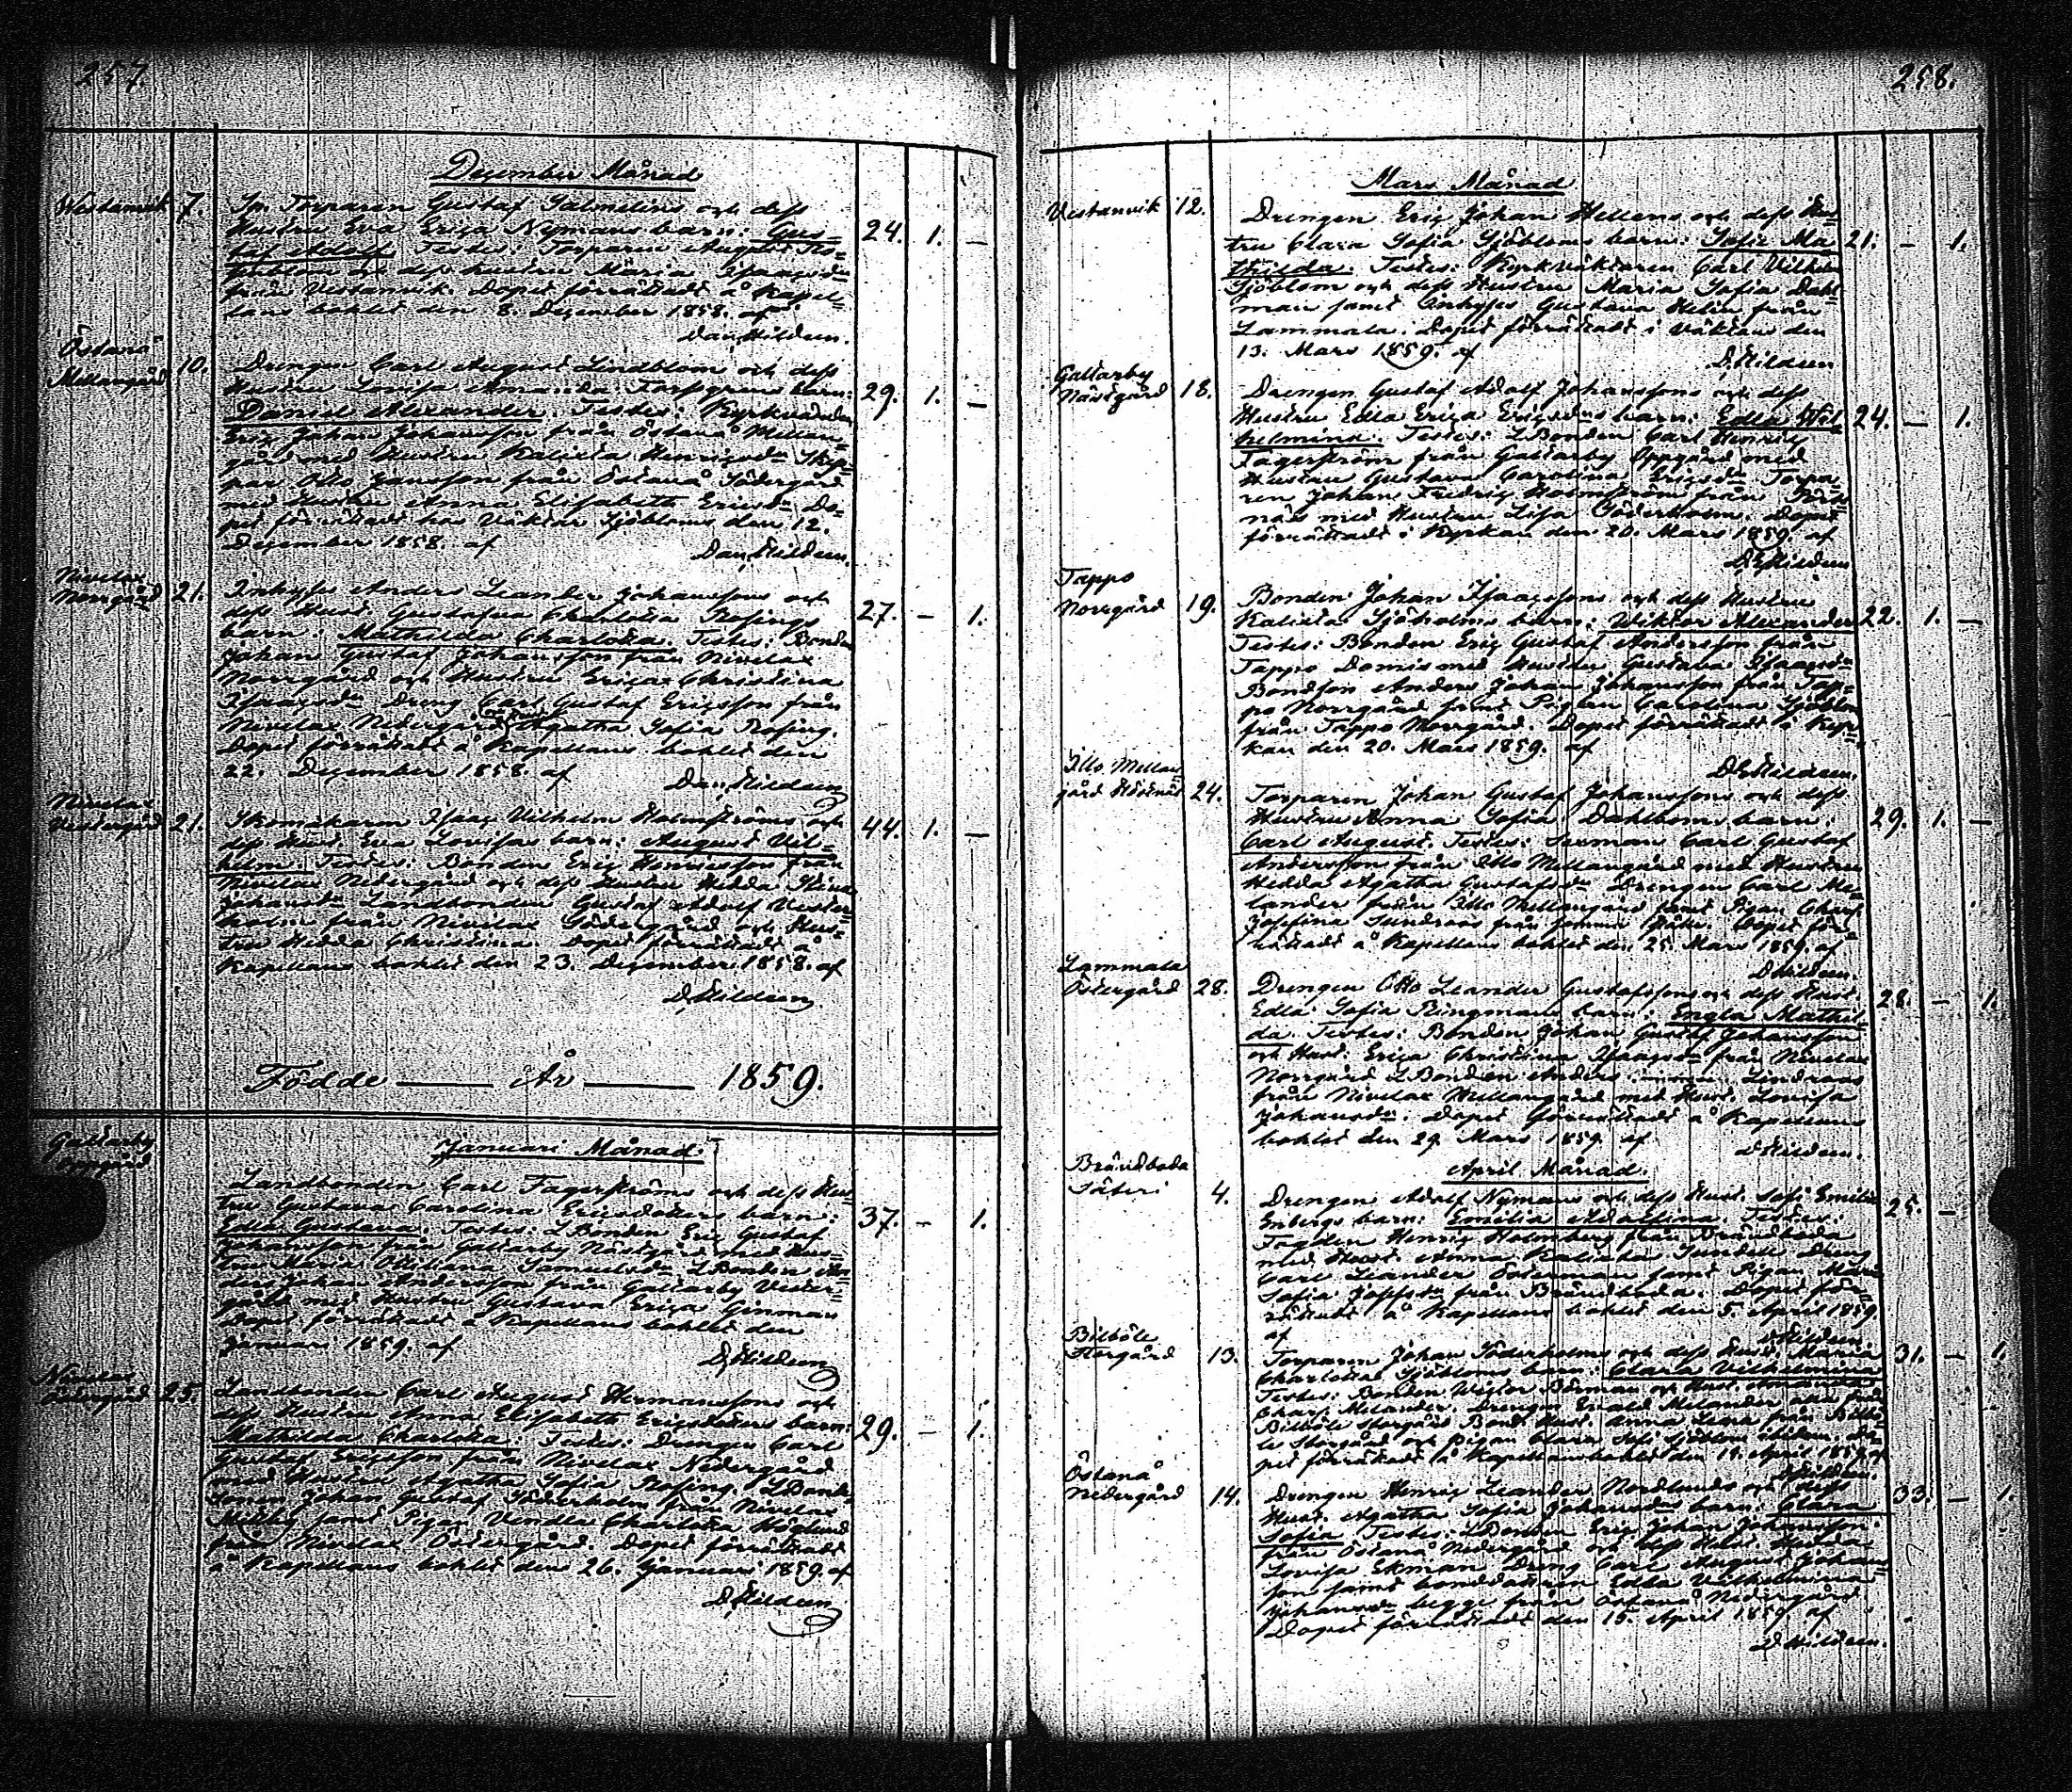 257.
December Månad
Westanvik 7. Torparen Gustaf Salmelins och dess
Hustru Eva Erica Nymans barn: Gus= 24. 1. –
taf Adolf. Testes: Torparen August
och dess hustru Maria Isaacsdr
från Vestanvik. Dopet förrättadt å Kapel=
lans bohlet den 8. December 1858. af
Dan. Hildeen.
Östanå
Mellangård 10. Drengen Carl August Lindblom och dess
Hustru Lovisa Amanda barn: 29. 1. –
Daniel Alexander. Testes: Kyrkvärden
Eric Johan Johansson från Östanå Mellan=
gård med Hustru Kalista Henricsdr Skep=
par Otto Jansson från Östanå Södergård
med Hustru Anna Elisabeth Ericsdr Do=
pet förrättadt hos Väktar Sjöbloms den 12.
December 1858. af Dan. Hildeen.
Nivelax
Norrgård 21. Inhyses Anders Leander Johanssons och
dess Hust. Gustafva Charlotta Rosings 27. – 1.
barn: Mathilda Charlotta. Testes: Bonden
Johan Gustaf Johansson från Nivelax
Norrgård och Hustru Erica Christina
Isaacsdr Dreng Carl Gustaf Ericsson från
Nivelax Nedergård Agatha Sofia Rosing.
Dopet förrättadt å Kapellans bohlet den
22. December 1858. af Dan. Hildeen
Nivelax
Westergård 21. Skomakaren Isaac Vilhelm Holmströms och 44. 1. –
dess Hust. Eva Lovisas barn: August Vil=
helm. Testes: Bonden Eric Henricsson från
Nivelax Nedergård och dess Hustru Hedda Stina
Johansdr Landbonden Gustaf Adolf Vester=
holm från Nivelax Södergård och Hus=
tru Hedda Christina. Dopet förrättadt å
Kapellans bohlet den 23. December 1858. af
D. Hildeen
Födde — År — 1859.
Januari Månad.
Galtarby
Oppgård Landbonden Carl Fagerströms och dess Hus=
tru Gustava Carolina Ericsdotters barn: 37. – 1.
Edla Gustava. Testes: LBonden Eric Gustaf
Johansson från Galtarby Nästgård med Hus=
tru Maria Samuelsdr LBonden An=
ders Johan Andersson från Galtarby Vester=
gård med Hustru Gustava Erica Ginman
Dopet förrättadt å Kapellans bohlet den
Januari 1859. af D. Hildeen
Nivelax
Södergård 25. Landbonden Carl August Hermanssons och
dess Hustru Anna Elisabeth Ericsdotters barn: 29. – 1.
Mathilda Charlotta. Testes: Drengen Carl
Gustaf Ericsson från Nivelax Nedergård
med Hustru Agatha Sofia Rosing. LBonde=
sonen Johan Gustaf Söderholm från Nivelax
samt Pigan Vendla Charlotta Höglund
från Nivelax Östergård. Dopet förrättadt
å Kapellans bohlet den 26. Januari 1859. af
D. Hildeen
258.
Mars Månad
Vestanvik 12. Drengen Eric Johan Hellens och dess Hus=
tru Clara Sofia Sjöbloms barn: Sofia Ma 21. – 1.
thilda. Testes: Kyrkväktaren Carl Vilhelm
Sjöblom och dess Hustru Maria Sofia Dahl=
man samt Inhyses Gustava Helin från
Lammala. Dopet förrättadt i Väktar den
13. Mars 1859. af D. Hildeen
Galtarby
Nästgård 18. Drengen Gustaf Adolf Johanssons och dess
Hustru Edla Erica Ericsdrs barn: Edla Wil 24. – 1.
helmina. Testes: LBonden Carl Henric
Fagerström från Galtarby Oppgård med
Hustru Gustava Carolina Ericsdr Torpa=
ren Johan Fredric Holmström från
näs med Hustru Lisa Söderholm. Dopet
förrättadt i Kyrkan den 20. Mars 1859. af
D. Hildeen
Tappo
Norrgård 19. Bonden Johan Isaacssons och dess Hustru
Kalista Sjöholms barn: Wiktor Alexander 22. 1. –
Testes: Bonden Eric Gustaf Andersson från
Tappo Domis med Hustru Gustava Isaacsdr
Bondson Anders Johan Johansson från Tap=
po Norrgård samt Pigan Carolina Sjöblom
från Tappo Norrgård. Dopet förrättadt i Kyr=
kan den 20. Mars 1859. af
D. Hildeen.
Illo Mellan=
gård 24. Torparen Johan Gustaf Johanssons och dess
Hustru Anna Sofia Dahlboms barn: 29. 1. –
Carl August. Testes: Sexman Carl Gustaf
Andersson från Illo Mellangård med Hustru
Hedda Agatha Gustafsdr Drengen Carl Me=
lander från Illo Mellangård samt Pigan Charl.
Josefina Sundroos från samma ställe. Dopet för=
rättadt å Kapellans bohlet den 25. Mars 1859. af
D. Hildeen.
Lammala
Östergård 28. Drengen Otto Leander Gustafssons och dess Hust. 28. – 1.
Edla Sofia Ringmans barn: Engla Mathil=
da. Testes: Bonden Johan Gustaf Johansson
och Hust: Erica Christina Isaacsdr från Nivelax
Norrgård LBonden Anders Lindroos
från Nivelax Mellangård med Hust. Lovisa
Johansdr. Dopet förrättadt å Kapellans
bohlet den 29. Mars 1859. af D. Hildeen.
April Månad.
Brändboda
Säteri 4. Drengen Adolf Nymans och dess Hust. Sofi Emilia 25. –
Enbergs barn: Emilia Adolfina. Testes:
Henric Holmberg från Brändboda
med Hust. Anna Kalista Sundell Dreng
Carl Leander Österman samt Pigan Maria
Sofia från Brändboda. Dopet för=
rättadt å Kapellans bohlet den 5. April 1859.
af D. Hildeen.
Bilböle
Storgård 13. Torparen Johan Söderholms och dess Hust. Maria 31. – 1.
Charlotta Sjöbloms barn: Clara Vilhelmina
Testes: Bonden Wictor Börman och Hust.
Charl. Melander. Drengen Melander från
Bilböle Storgård Bond. Hust. Anna Lena från Bilbö=
le Storgård och Pigan Clara Sofi Sjöblom ibidem. Do=
pet förrättadt å Kapellansbohlet den 14. April 1859. af
D. Hildeen.
Östanå
Nedergård 14. Drengen Henric Leander Nordlunds och dess
Hust. Agatha Sofia Johansdrs barn: Clara 33. – 1.
Sofia. Testes: LBonden Eric Johan Johansson
från Östanå Nedergård och dess Hust. Hedda
Lovisa Ekman Dreng Carl August Johans=
son samt bonddottren Edla Vilhelmina
Johansdr begge från Östanå Nedergård
Dopet förrättadt den 15. April 1859. af
D. Hildeen.